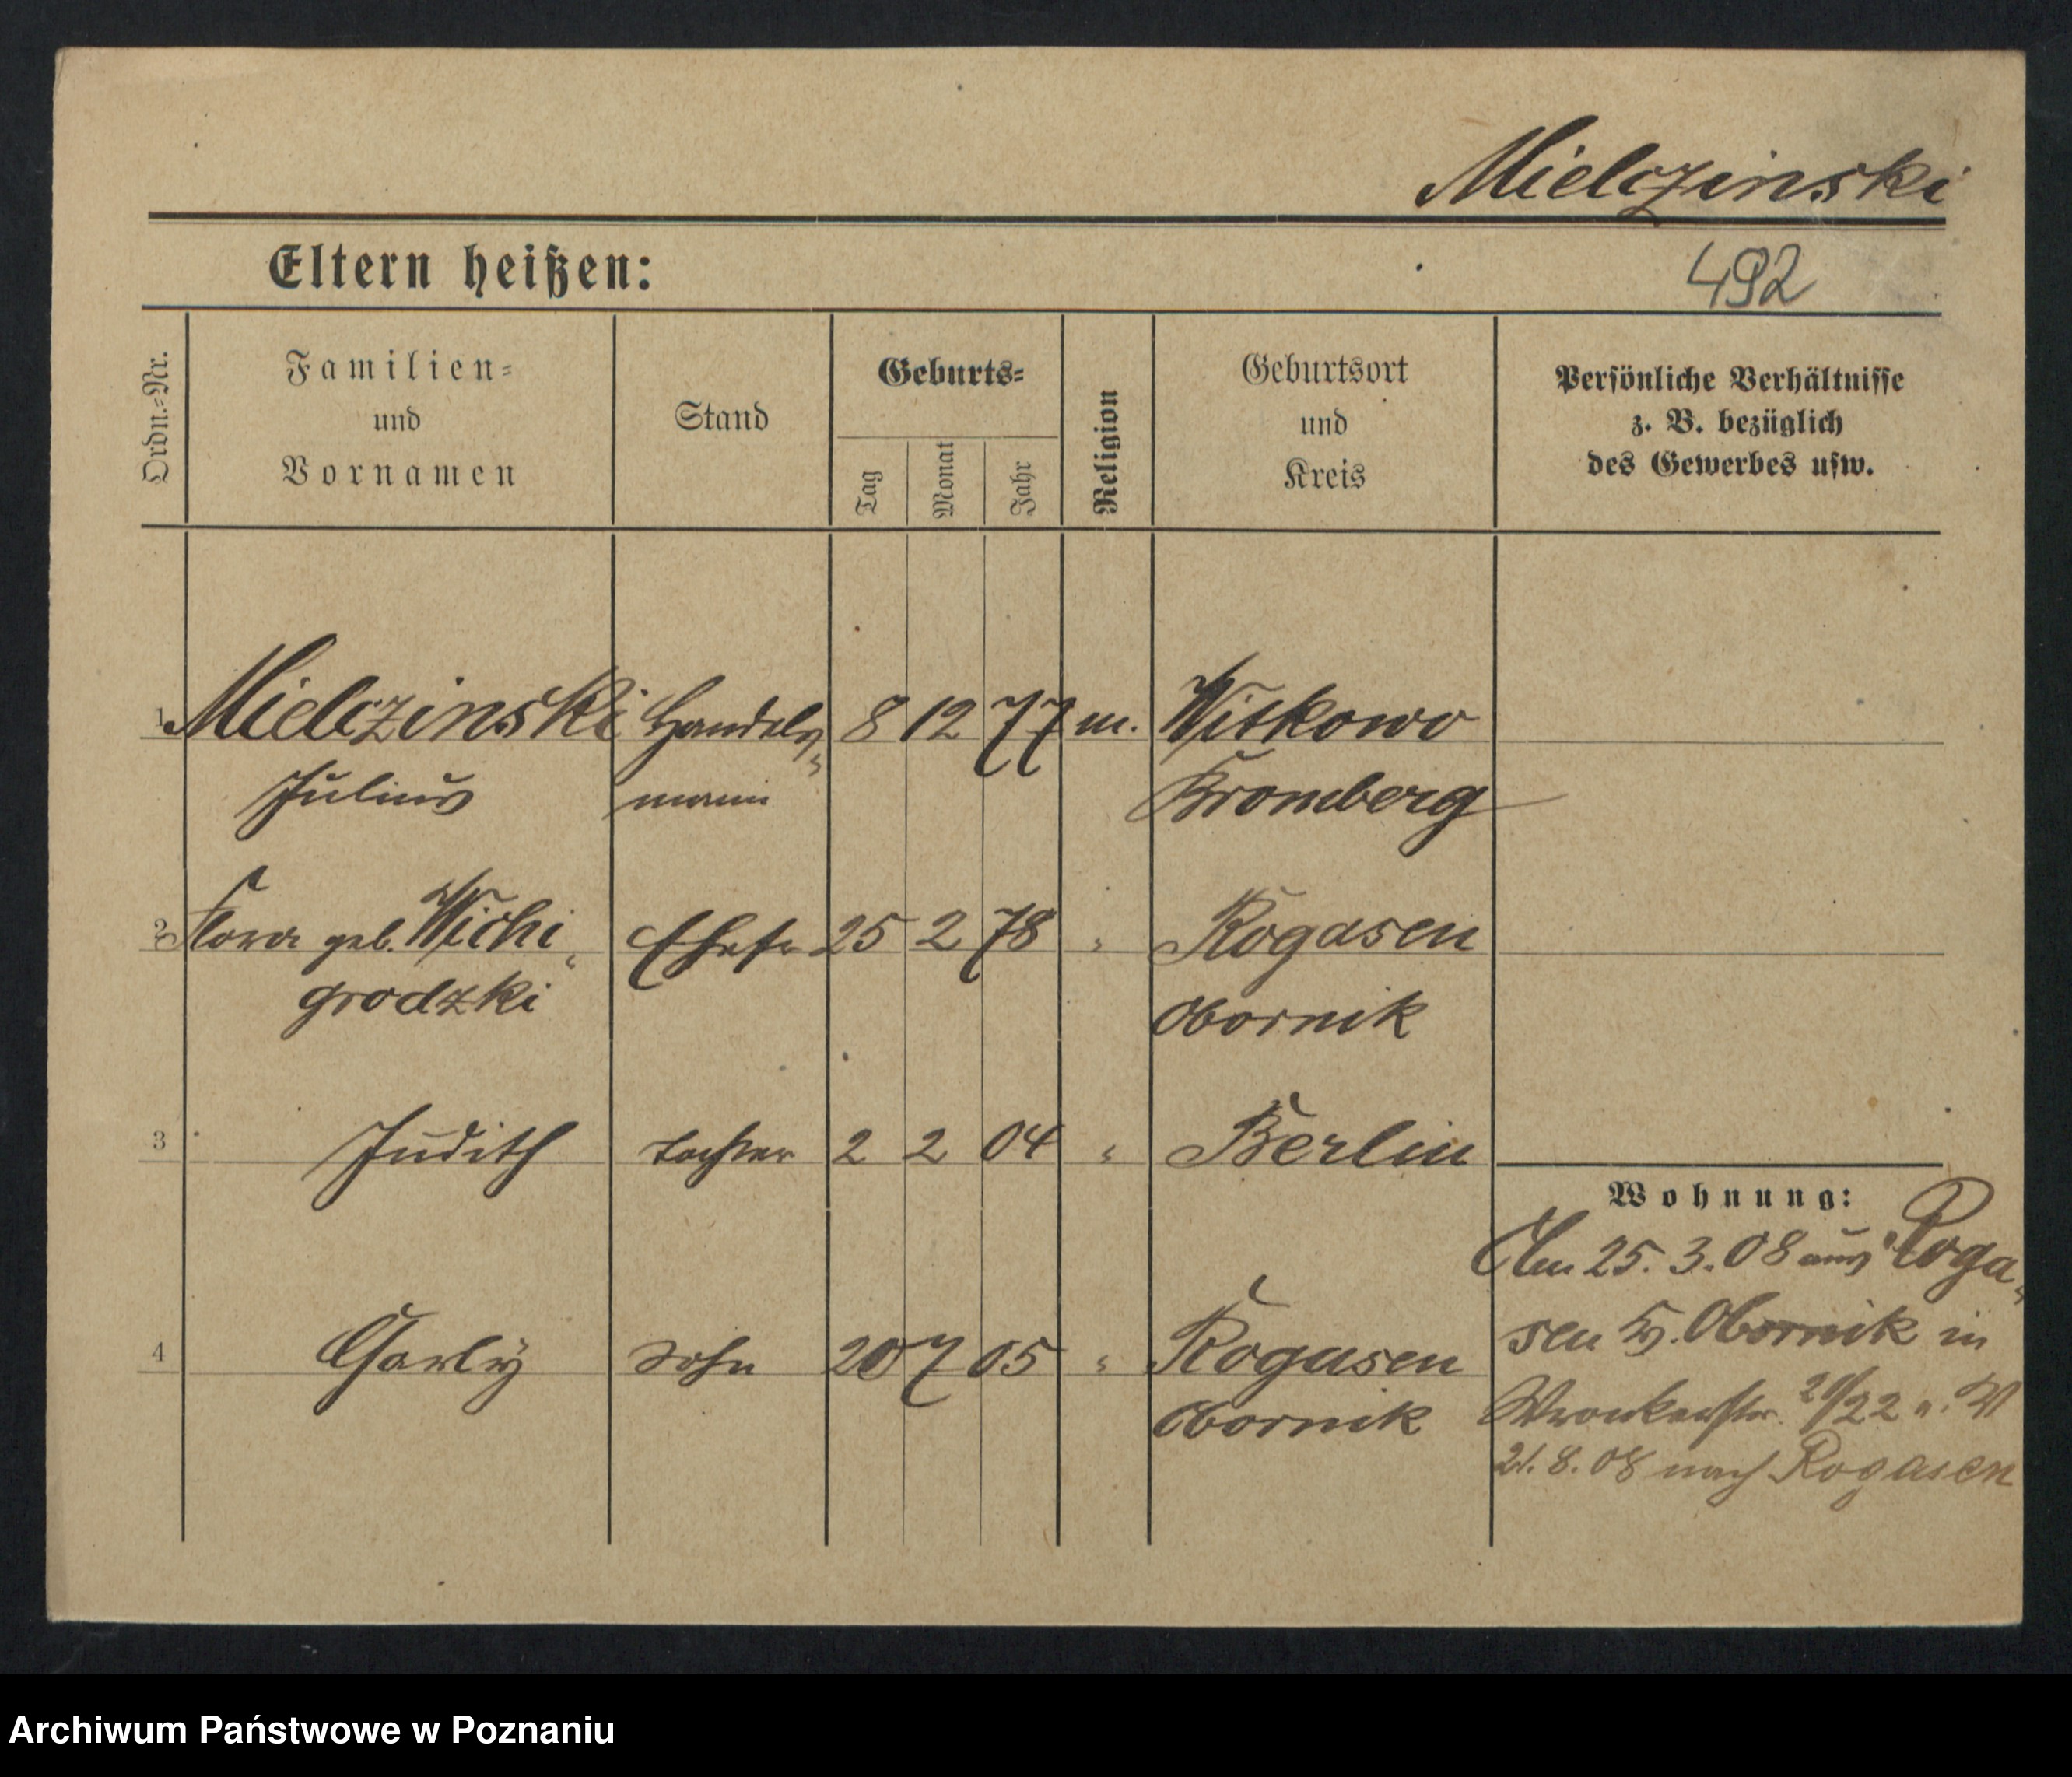 Mielczinski
Eltern heißen:
492
Ordn.-Nr.
Familien-
und
Vornamen
Stand
Geburts-
Tag
Monat
Jahr
Religion
Geburtsort
und
Kreis
Persönliche Verhältnisse
z. B. bezüglich
des Gewerbes usw.
1 Mielczinski Handels- 8 12 77 m. Witkowo
Julius mann Bromberg
2 Flora geb. Wichi- Ehefr 25 2 78 " Rogasen
grodzki Obornik
3 Judith Tochter 2 2 04 " Berlin
Wohnung:
Am 25. 3. 08 aus Roga-
4 Charly Sohn 20 7 05 " Rogasen
Obornik
sen Kr. Obornik in
Wronkerstr. 21/22 W
21. 8. 08 nach Rogasen
Archiwum Państwowe w Poznaniu